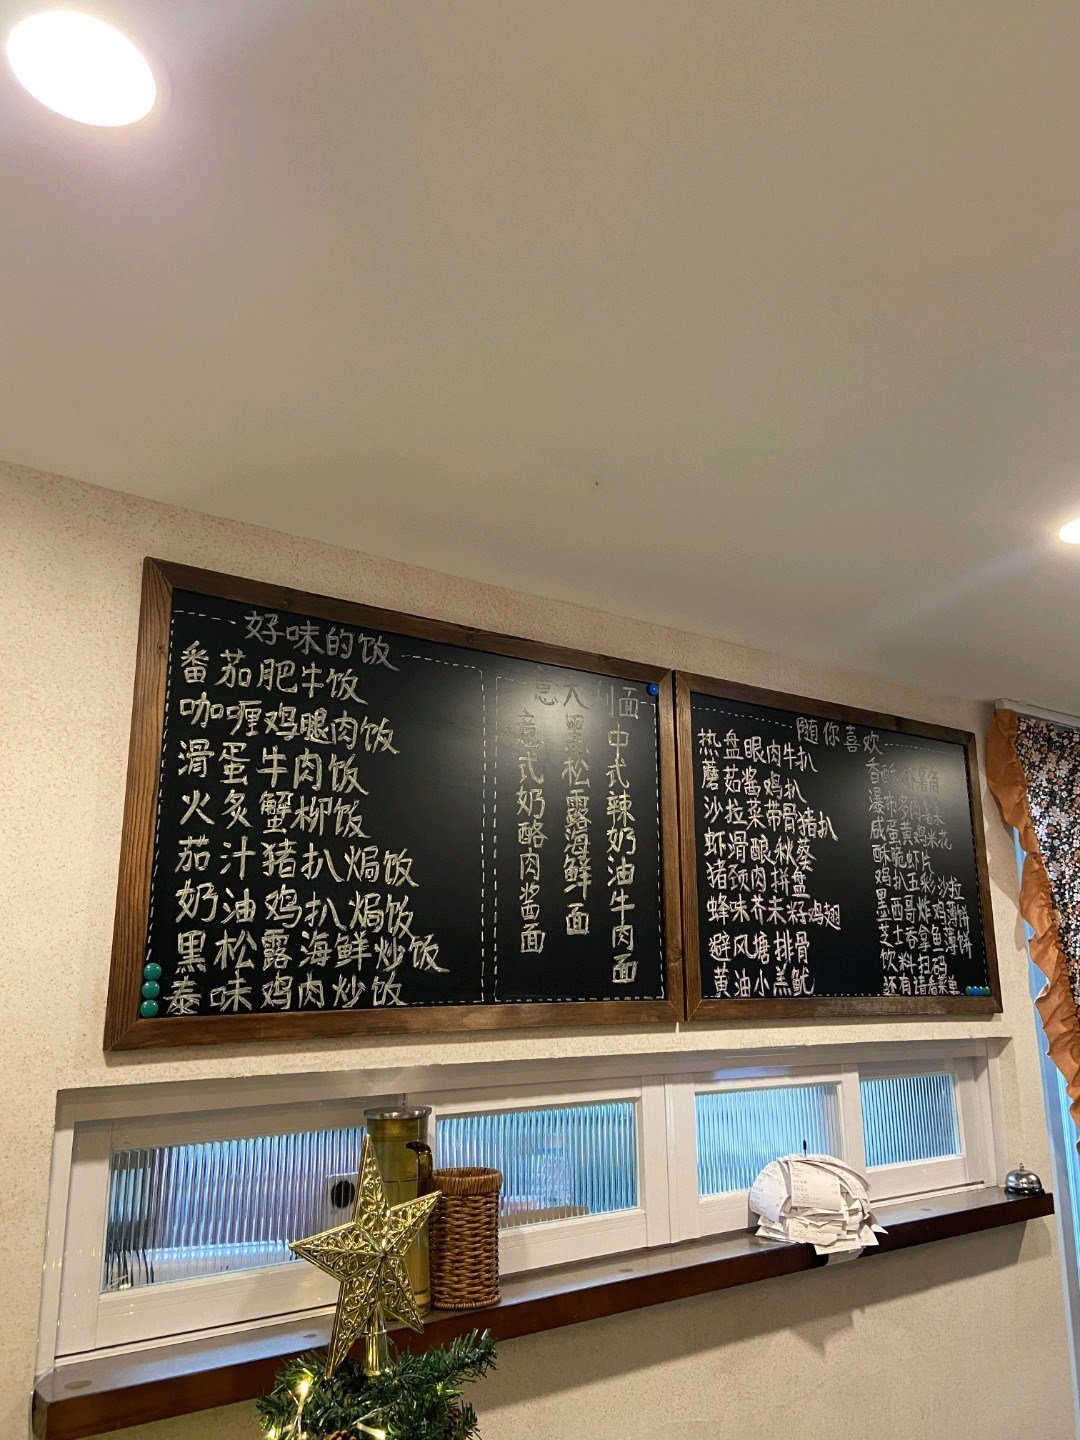 好味的饭
番茄肥牛饭
咖喱鸡腿肉饭
滑蛋牛肉饭
火炙蟹柳饭
茄汁猪扒焗饭
奶油鸡扒焗饭
黑松露海鲜炒饭
泰味鸡肉炒饭
意大利面
意式奶酪肉酱面
黑松露海鲜面
中式辣奶油牛肉面
随你喜欢
热盘眼肉牛扒
蘑菇酱鸡扒
沙拉菜带骨猪扒
虾滑酿秋葵
猪颈肉拼盘
蜂味芥末籽鸡翅
避风塘排骨
黄油小羔鱿
香酥薯角
瀑布多肉毛
咸蛋黄鸡米花
酥脆虾片
鸡扒五彩沙拉
墨西哥炸鸡薄饼
芝士吞拿鱼薄饼
饮料扫码
还有请看菜单